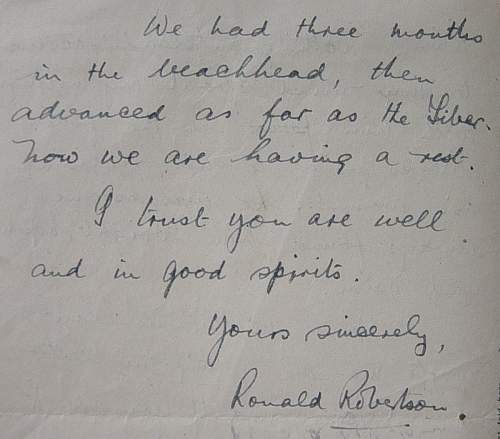 We had three months
in the beachhead, then
advanced as far as the Tiber.
Now we are having a rest.
I trust you are well
and in good spirits.
Yours sincerely,
Ronald Robertson.